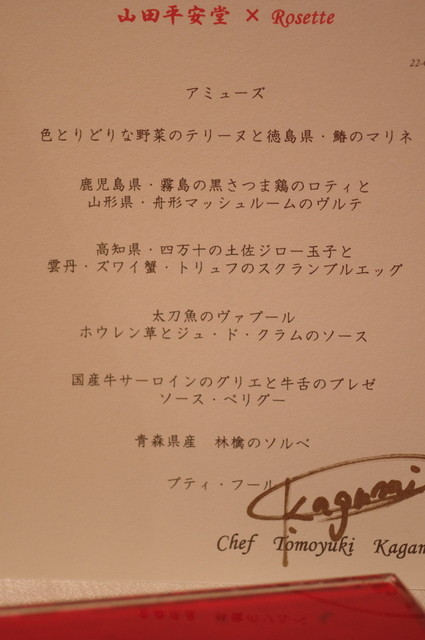 山田平安堂 × Rosette
アミューズ
色とりどりな野菜のテリーヌと徳島県・鰆のマリネ
鹿児島県・霧島の黒さつま鶏のロティと
山形県・舟形マッシュルームのヴルテ
高知県・四万十の土佐ジロー玉子と
雲丹・ズワイ蟹・トリュフのスクランブルエッグ
太刀魚のヴァプール
ホウレン草とジュ・ド・クラムのソース
国産牛サーロインのグリエと牛舌のブレゼ
ソース・ペリグー
青森県産 林檎のソルベ
プティ・フール
Kagami
Chef Tomoyuki Kagam